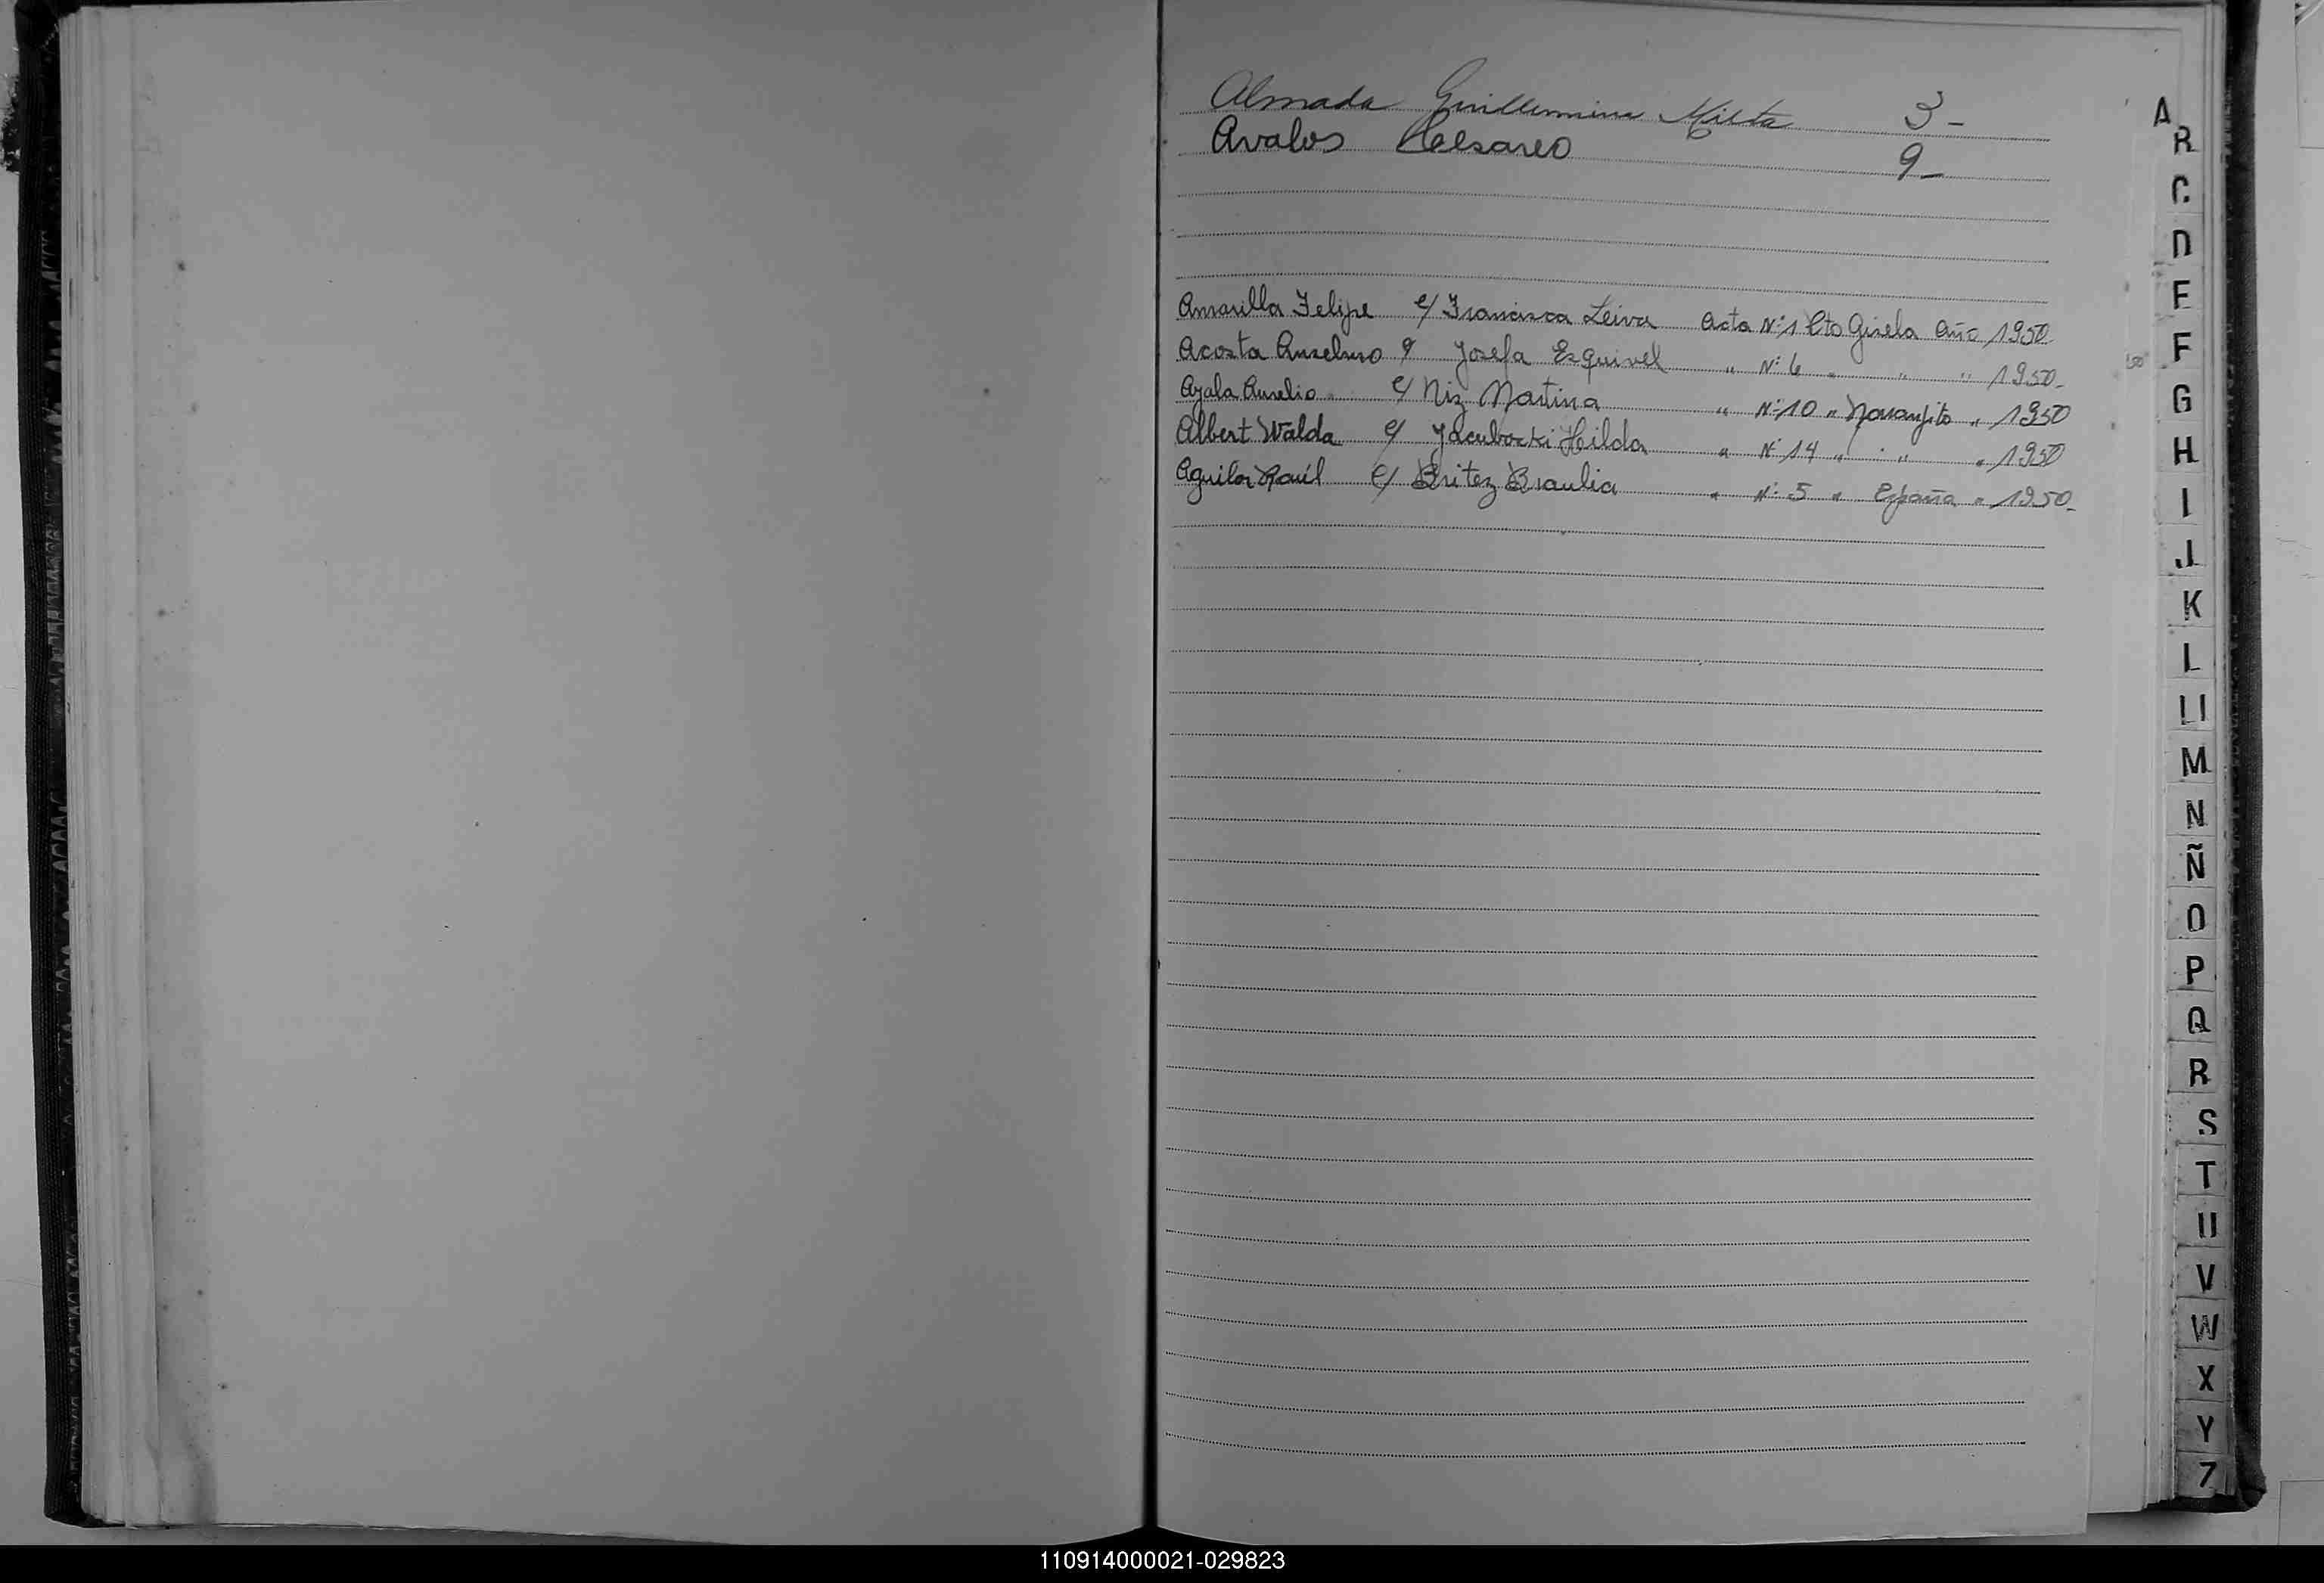 Almada Guillermina Milta 3-
Avalos Celsareo 9-
Amarilla Felipe c/ Francisca Leiva Acta Nº 1 Cto Gisela Año 1950
Acosta Anselmo c/ Josefa Esquivel " Nº 6 " " " 1950-
Ayala Aurelio c/ Niz Martina " Nº 10 " Naranjito " 1950
Albert Walda c/ Jacubocki Hilda " Nº 14 " " " 1950
Aguilar Raúl c/ Britez Braulia " Nº 5 " España " 1950-
A
B
C
D
E
F
G
H
I
J
K
L
LL
M
N
Ñ
O
P
Q
R
S
T
U
V
W
X
Y
Z
110914000021-029823